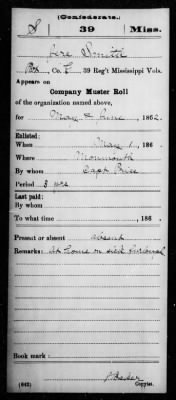 (Confederate.)
S 39 Miss.
Jere Smith
Co. 39 Reg't Mississippi Vols.
Appears on
Company Muster Roll
of the organization named above,
for May & June, 1862.
Enlisted:
When May 1, 186 .
Where Monmouth
By whom Capt
Period 3 yrs
Last paid:
By whom
To what time , 186 .
Present or absent absent
Remarks: At home on sick furlough
Book mark:
(642) Copyist.